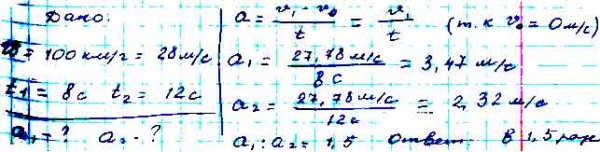 Дано:
v = 100 км/г = 28 м/с
t1 = 8 с t2 = 12 с
a1 = ? a2 - ?
a = v1 - v0 / t = v1 / t (т.к v0 = 0 м/с)
a1 = 27,78 м/с / 8 с = 3,47 м/с
a2 = 27,78 м/с / 12 с = 2,32 м/с
a1 : a2 = 1,5 Ответ в 1,5 раз